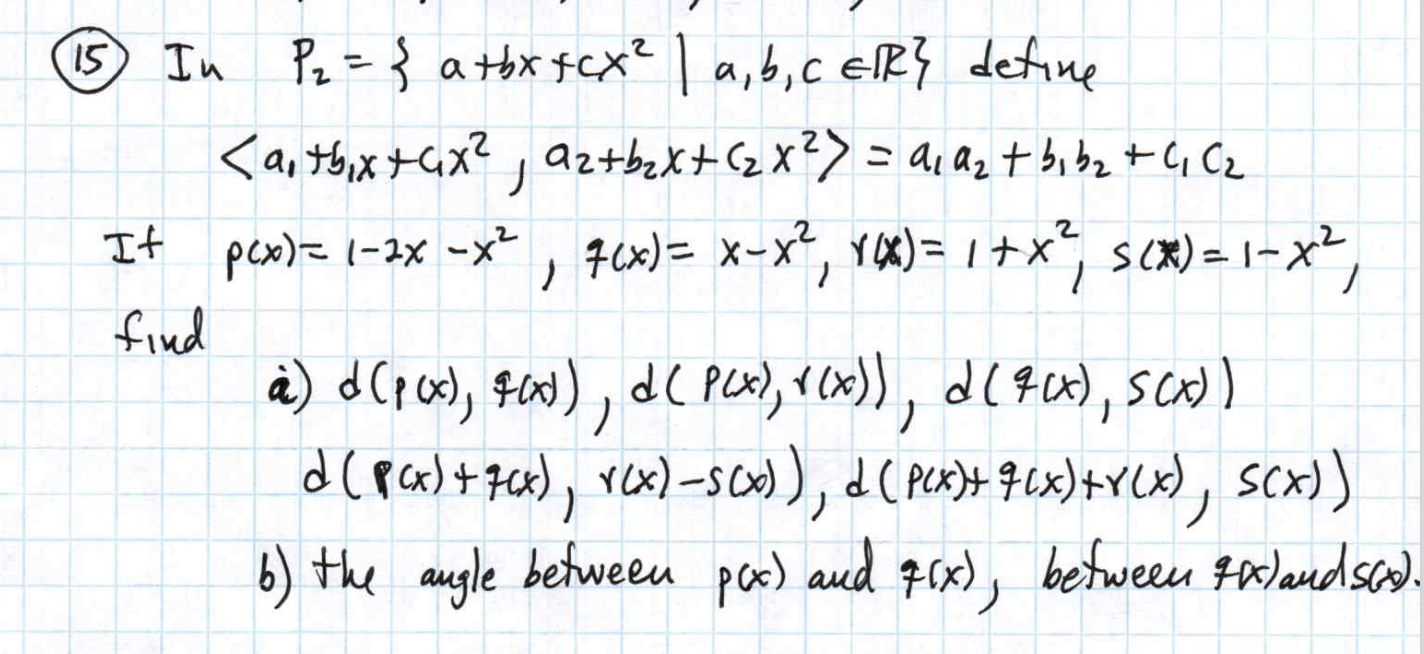 (15) In P₂ = { a+bx+cx² | a,b,c ∈ℝ} define
<a₁+b₁x+c₁x² , a₂+b₂x+c₂x²> = a₁a₂ + b₁b₂ + c₁c₂
If p(x)= 1-2x-x² , q(x)= x-x², r(x)= 1+x², s(x)=1-x²,
find
a) d(p(x), q(x)) , d( p(x), r(x)) , d( q(x), s(x))
d(p(x)+q(x), r(x)-s(x)), d(p(x)+q(x)+r(x), s(x))
b) the angle between p(x) and q(x), between q(x) and s(x).